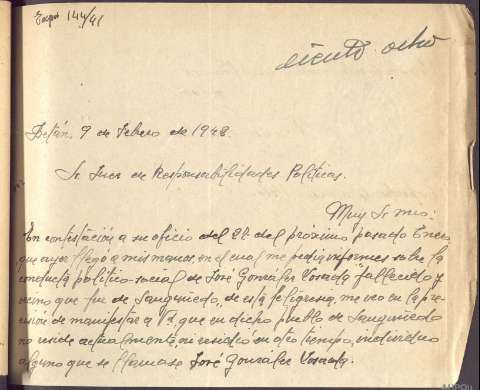 144/41
ciento ocho
Betán, 9 de Febrero de 1948.
Sr Juez de Responsabilidades Políticas.
Muy Sr mío:
En contestación a su oficio del 24 del próximo pasado Enero
que ayer llegó a mis manos, en el cual me pedía informes sobre la
conducta político social de José González Losada fallecido y
vecino que fue de Sanguñedo, de esta feligresía, me veo en la pre-
cisión de manifestar a Vd. que en dicho pueblo de Sanguñedo
no reside actualmente, ni residió en otro tiempo, individuo
alguno que se llamase José González Losada.